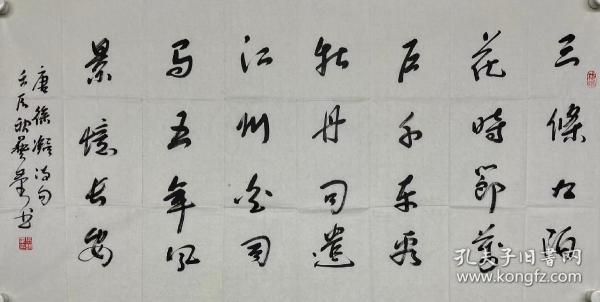 三條九陌
花時節萬
户千車看
牡丹争遣
江州白司
马五年风
景憶长安
唐徐凝詩句
壬辰秋书
孔夫子旧书网
www.kongfz.com